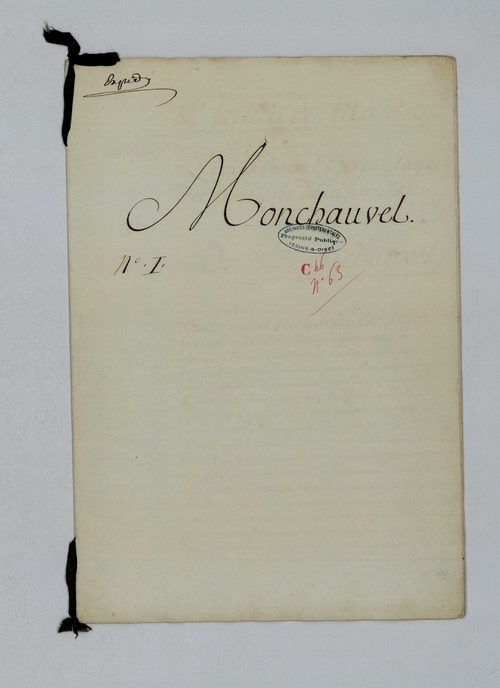 Expédié
Monchauvel.
ARCHIVES DÉPARTEMENTALES
Propriété Publique
(SEINE-&-OISE)
Nº. I.
C 46
nº 63